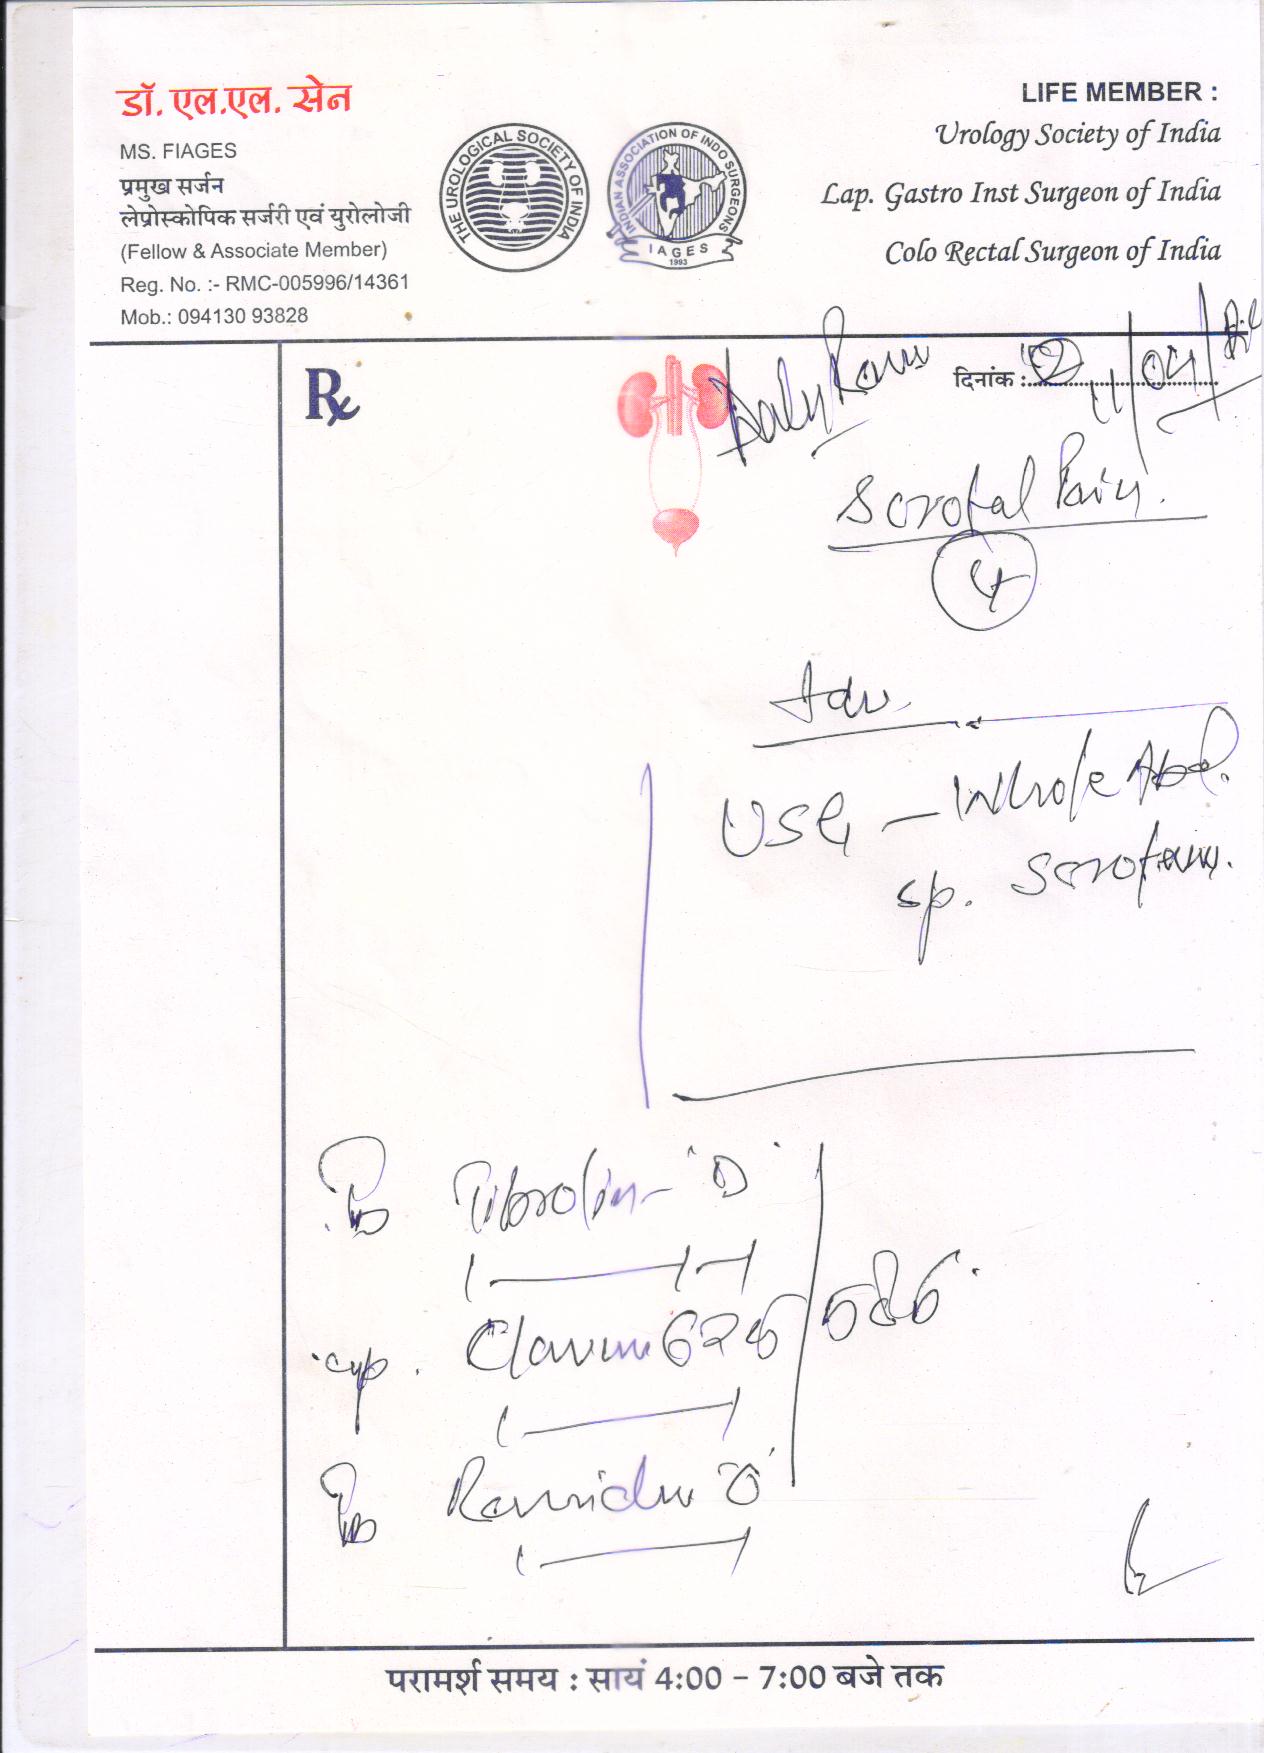 डॉ. एल.एल. सेन
MS. FIAGES
प्रमुख सर्जन
लेप्रोस्कोपिक सर्जरी एवं युरोलोजी
(Fellow & Associate Member)
Reg. No. :- RMC-005996/14361
Mob.: 094130 93828
THE UROLOGICAL SOCIETY OF INDIA
INDIAN ASSOCIATION OF INDO SURGEONS
IAGES
1993
LIFE MEMBER :
Urology Society of India
Lap. Gastro Inst Surgeon of India
Colo Rectal Surgeon of India
Rx
दिनांक :
Scrotal Pain.
Adv.
USG - Whole Abd.
sp. Scrotum.
cap. Clavum 625
परामर्श समय : सायं 4:00 – 7:00 बजे तक